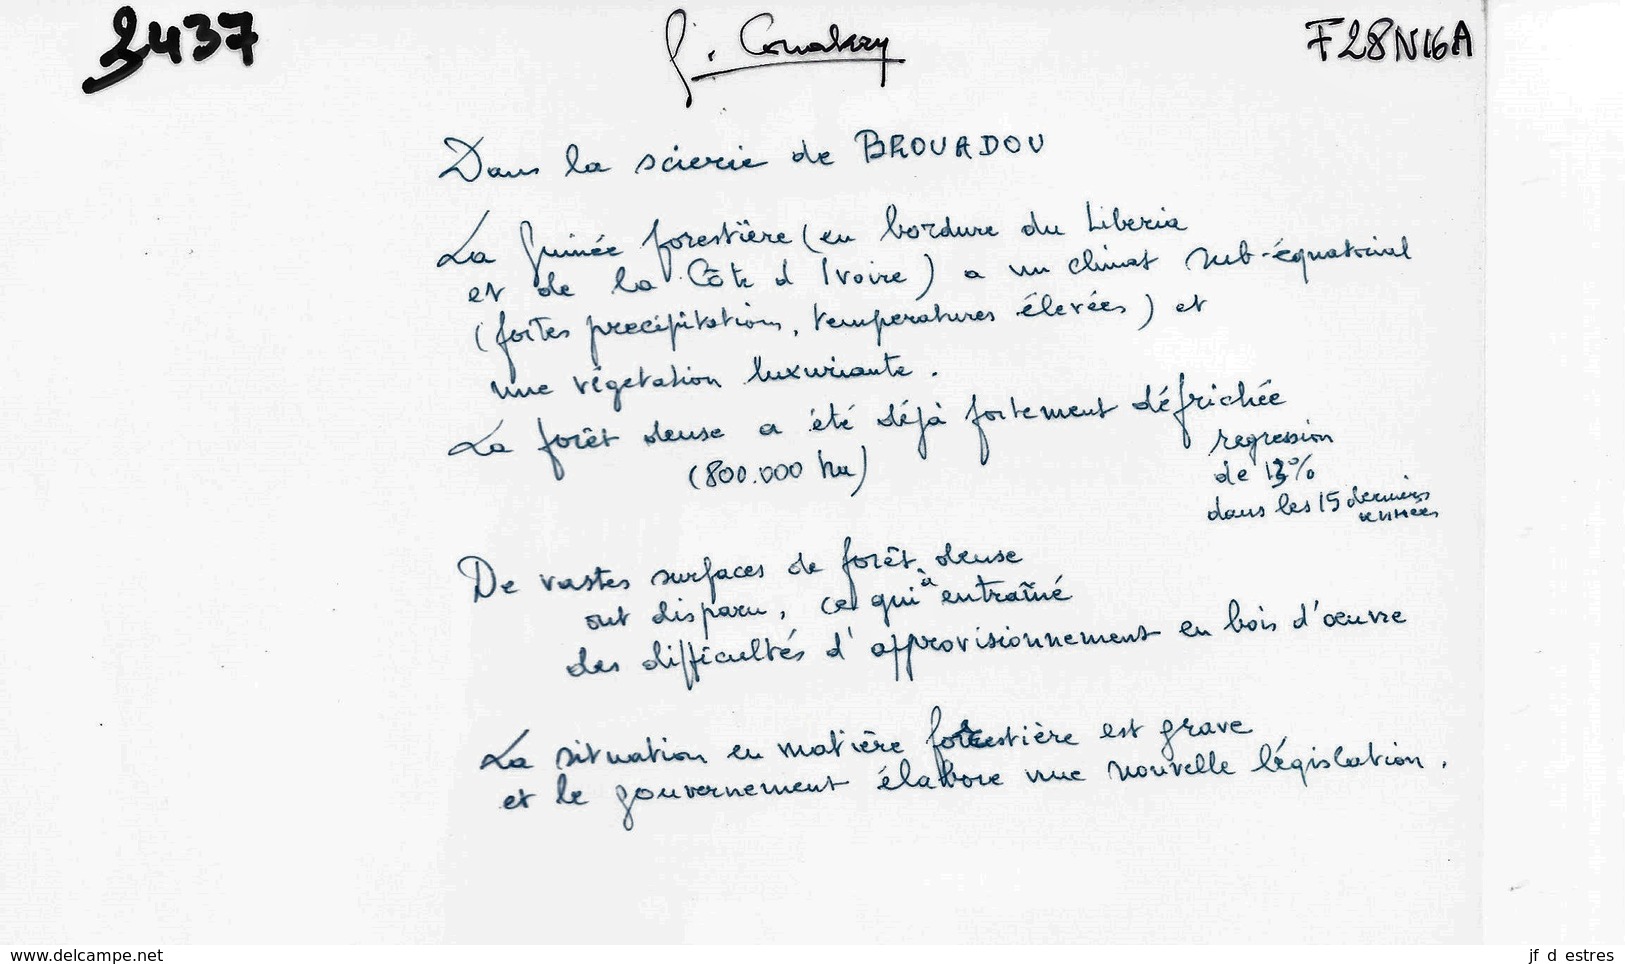 2437
G. Conakry
F28N16A
Dans la scierie de BROUADOU
La Guinée forestière (en bordure du Liberia
et de la Côte d Ivoire) a un climat sub-équatorial
(fortes précipitations, temperatures élevées) et
une végetation luxuriante.
La forêt dense a été déjà fortement défrichée
(800.000 ha)
regression
de 13%
dans les 15 derniers
années
De vastes surfaces de forêt dense
ont disparu, ce qui a entraîné
des difficultés d'approvisionnement en bois d'oeuvre
La situation en matière forestière est grave
et le gouvernement élabore une nouvelle législation.
www.delcampe.net
jf d estres